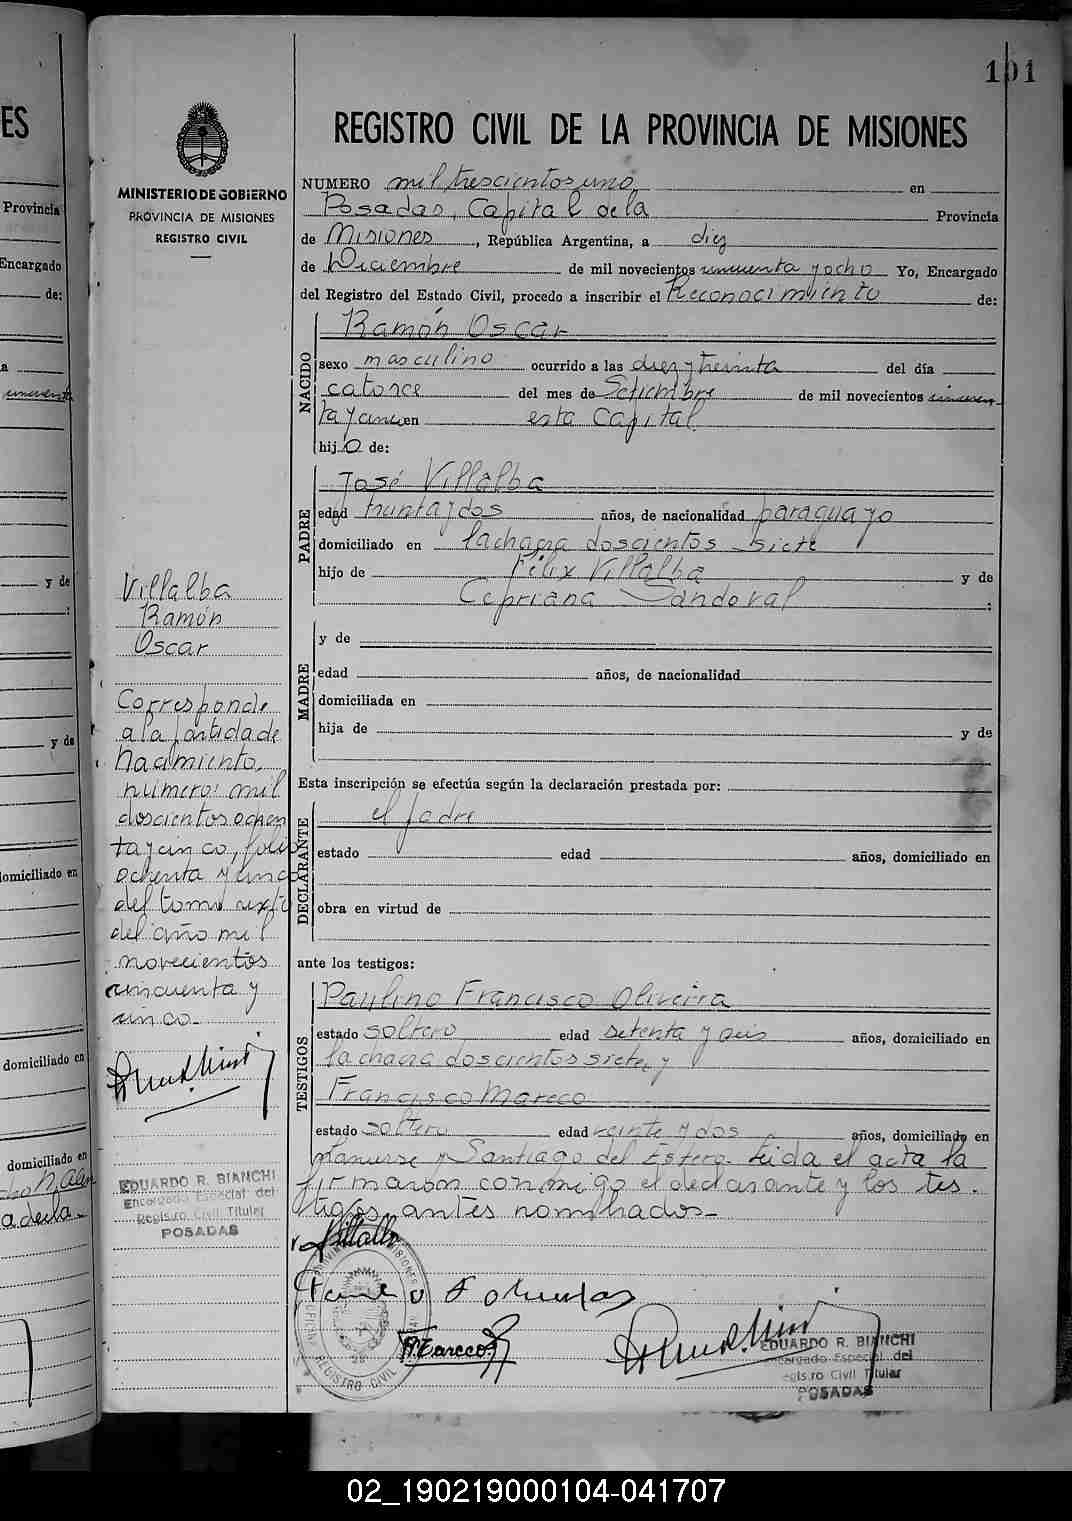 101
REGISTRO CIVIL DE LA PROVINCIA DE MISIONES
MINISTERIO DE GOBIERNO
PROVINCIA DE MISIONES
REGISTRO CIVIL
NUMERO mil trescientos uno en
Posadas, Capital de la Provincia
de Misiones, República Argentina, a diez
de Diciembre de mil novecientos cincuenta y ocho Yo, Encargado
del Registro del Estado Civil, procedo a inscribir el Reconocimiento de:
NACIDO
Ramón Oscar
sexo masculino ocurrido a las diez y treinta del día
catorce del mes de Setiembre de mil novecientos cincuen-
ta y cinco en esta Capital
hijo de:
PADRE
José Villalba
edad treinta y dos años, de nacionalidad paraguayo
domiciliado en la chacra doscientos siete
hijo de Félix Villalba y de
Cipriana Sandoval :
MADRE
y de
edad años, de nacionalidad
domiciliada en
hija de y de
Esta inscripción se efectúa según la declaración prestada por:
DECLARANTE
el padre
estado edad años, domiciliado en
obra en virtud de
ante los testigos:
TESTIGOS
Paulino Francisco Oliveira
estado soltero edad setenta y seis años, domiciliado en
la chacra doscientos siete, y
Francisco Mareco
estado soltero edad veinte y dos años, domiciliado en
y Santiago del Estero. Leida el acta la
firmaron conmigo el declarante y los tes-
tigos antes nombrados-
Villalba
Mareco
EDUARDO R. BIANCHI
Encargado Especial del
Registro Civil Titular
POSADAS
Villalba
Ramón
Oscar
Corresponde
a la partida de
Nacimiento,
número: mil
doscientos ochen
ta y cinco, folio
ochenta y cinco
del tomo sexto
del año mil
novecientos
cincuenta y
cinco-
EDUARDO R. BIANCHI
Encargado Especial del
Registro Civil Titular
POSADAS
REGISTRO CIVIL
ES
Provincia
Encargado
de:
a
y de
:
y de
domiciliado en
domiciliado en
domiciliado en
a de la-
02_190219000104-041707